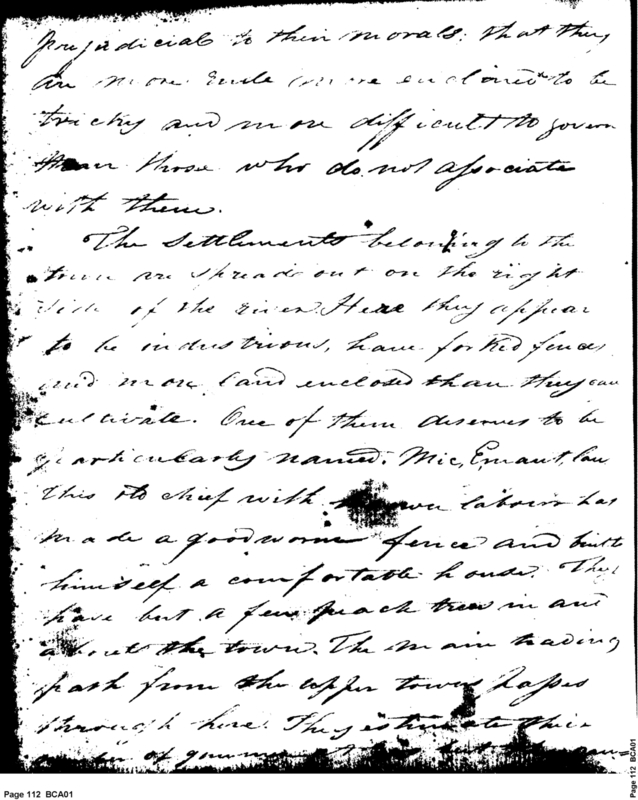 prejudicial to their morals; that they
are more rude more enclined to be
tricky and more difficult to govern
than those who do not associate
with them.
The Settlements belonging to the
town are spread out on the right
side of the river. Here they appear
to be industrious, have forked fences
and more land enclosed than they can
cultivate. One of them deserves to be
particularly named. Mic, E
This old chief with own labour has
made a good worm fence and built
himself a comfortable house. They
have but a few peach trees in and
about the town. The main trading
path from the upper towns passes
through here. They estimate their
of gunmen at
Page 112 BCA01
Page 112 BCA01